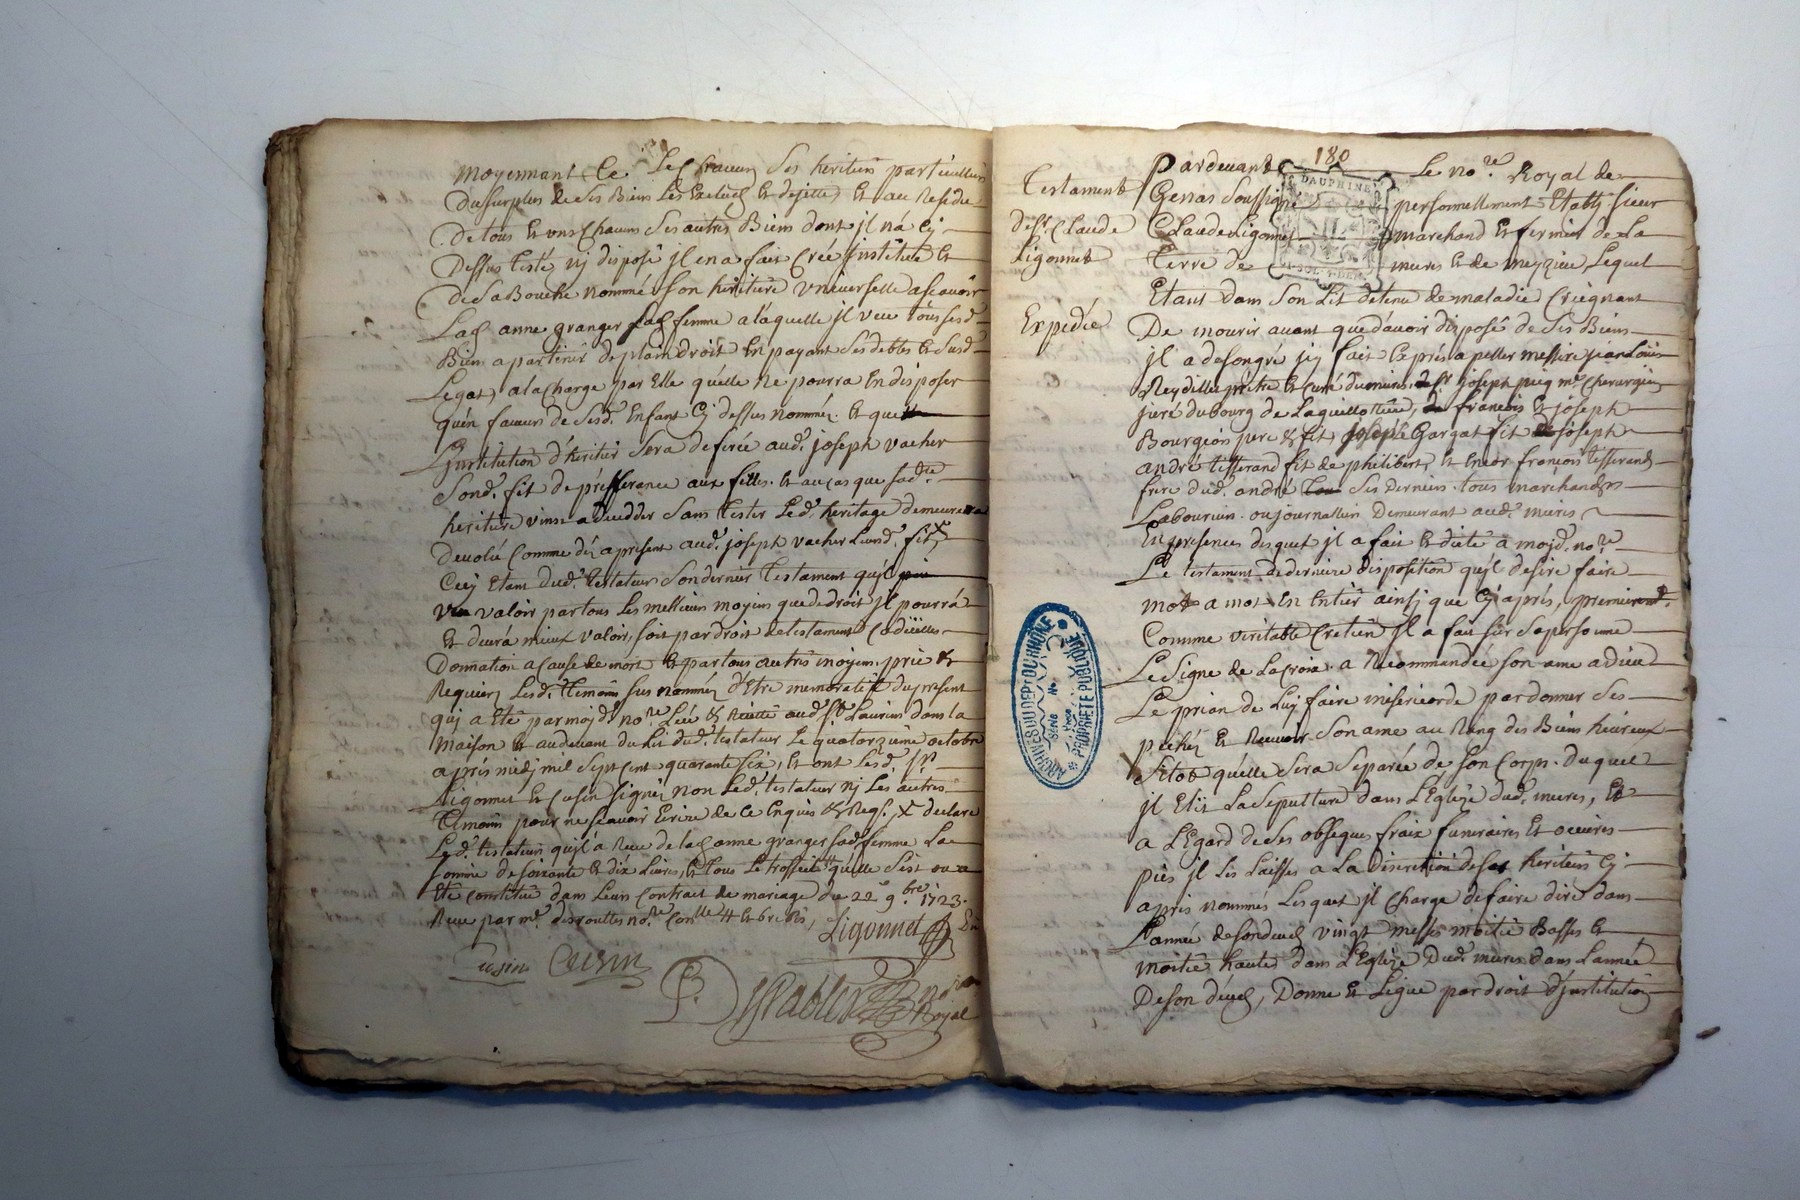 moyennant Ce Les Chacuns Ses heritiers particulliers
Du Surplus de Ses Biens Les Exclud Et dejette, Et au Residu
De tous Et uns Chacuns Ses autres Biens dont jl n'a Cy
Dessus testé ny disposé jl en a fait Créé jnstitué Et
De Sa Bouche nommé Son heritiere Universelle a Scavoir
Lad. anne granger Sad. femme a laquelle jl veut tous Sesd.
Biens apartenir de plain droit En payant Ses debtes Et Susd.
Legats, a la Charge par Elle qu'elle ne pourra En disposer
qu'en faveurs de Sesd. Enfant Cy dessus nommés. Et que
L'jnstitution d'heritier Sera deferée aud. joseph vacher
Sond. fils de préfferance aux filles. Et au cas que Sad.te
heritiere vinse a deceder Sans tester Led. heritage demeurera
Devolu Comme dés a present aud. joseph vacher Leurd. fils
Cecy Etant dud. testateur Son dernier testament qu'jl
veu valoir par tous Les mellieurs moyens que de droit jl pourrá
Et devrá mieux valoir, soit par droit de testament Codicilles
Donnation a Cause de mort Et par tous autres moyens. prié Et
Requiers Lesd. temoins Sus nommés d'Etre memoratifs du present
qui a Eté par moyd. no.re Leu Et Recitté aud. St Laurens dans la
maison Et au devant du Lit dud. testateur Le quatorzieme octobre
aprés midy mil Sept Cent quarante Six, Et ont Lesd. Srs
Ligonnet Et Cusin Signés non Led. testateur ny Les autres
temoins pour ne Scavoir Ecrire de Ce Enquis Et Reqs. X declare
Led. testateur qu'jl á Receu de lad. anne granger Sad. femme La
Somme de Soixante Et dix Livres, Et tous Le trossel qu'elle S'est ou a
Eté Constitué dans Leur Contrat de mariage du 22e 9.bre 1723.
Receu par me. desroulles no.re
Ligonnet
Cusin
no.re
Royal
180
DAUPHINE
Testament
de Sr. Claude
Ligonnet
Expedié
Pardevant Le no.re Royal de
Genas Soussigné personnellement Etably Sieur
Claude Ligonnet marchand Et fermier de La
Terre de mures Et de meyzieu, Lequel
Etant dans Son Lit detenu de maladie Craignant
De mourir avant que d'avoir disposé de Ses Biens
jl a de Son gré jcy fait Exprés apeller messire jean Louis
Reydellet prêtre Et curé du mures, Sr joseph me Chirurgien
juré du bourg de La guillottiere, francois Et joseph
Bourgeois pere Et fils joseph Gargat fils joseph
andré tisserand fils de philibert, Et Encor francois tisserand
frere dud. andré Ses Derniers tous marchands
Laboureurs ou journalliers Demeurant aud. mures
En presences desquels jl a fait Et dicté a moyd. no.re
Le testament de derniere disposition qu'jl desire faire
mot a mot En Entier ainsy que Cy aprés, premieremt.
Comme veritable Cretien jl a fait Sur Sa personne
Le Signe de La Croix. a Recommandée Son ame a dieu
Le prian de Luy faire misericorde pardonner Ses
pechés Et Recevoir Son ame au Rang des Biens heureux
Sitot qu'elle Sera Separée de Son Corps. duquel
jl Elit La Sepulture dans L'Eglize dud. mures, Et
a L'Egard de Ses obseques fraix funeraires Et oeuvres
pies jl Les Laisses a La discretion de Ses heritiers Cy
aprés nommés Lesquels jl Charge de faire dire dans
L'année de Son deceds vingt messes moitié Basses Et
moitié hautes dans L'Eglize Dud. mures dans L'année
De Son décéds, Donne Et Legue par droit d'jnstitution
ARCHIVES DU DEPT DU RHÔNE
PROPRIÉTÉ PUBLIQUE
Série
No